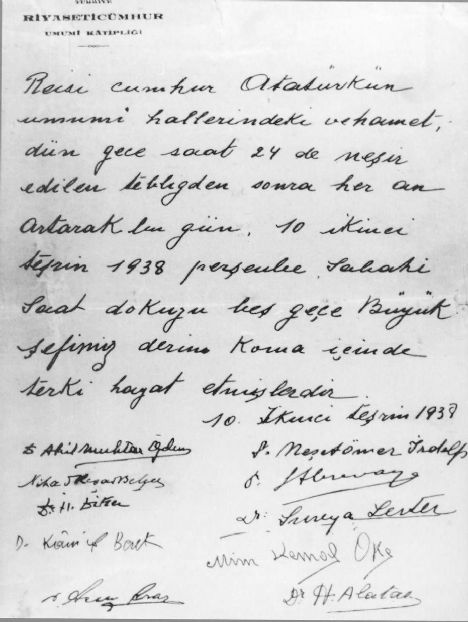 TÜRKİYE
RİYASETİCÜMHUR
UMUMİ KÂTİPLİĞİ
Reisi cumhur Atatürkün
umumî hallerindeki vehamet,
dün gece saat 24 de neşir
edilen tebligden sonra her an
artarak bu gün, 10 ikinci
teşrin 1938 perşenbe sabahi
saat dokuzu beş geçe Büyük
şefimiz derin koma içinde
terki hayat etmişlerdir.
10. İkinci teşrin 1938
Dr Akil Muhtar Özden
Dr. Neşetömer İrdelp
Nihad Reşad Belger
Dr.
Dr. H.
Dr. Süreya Serter
Dr Kâmil Berk
Mim Kemal Öke
Dr H. Alataş